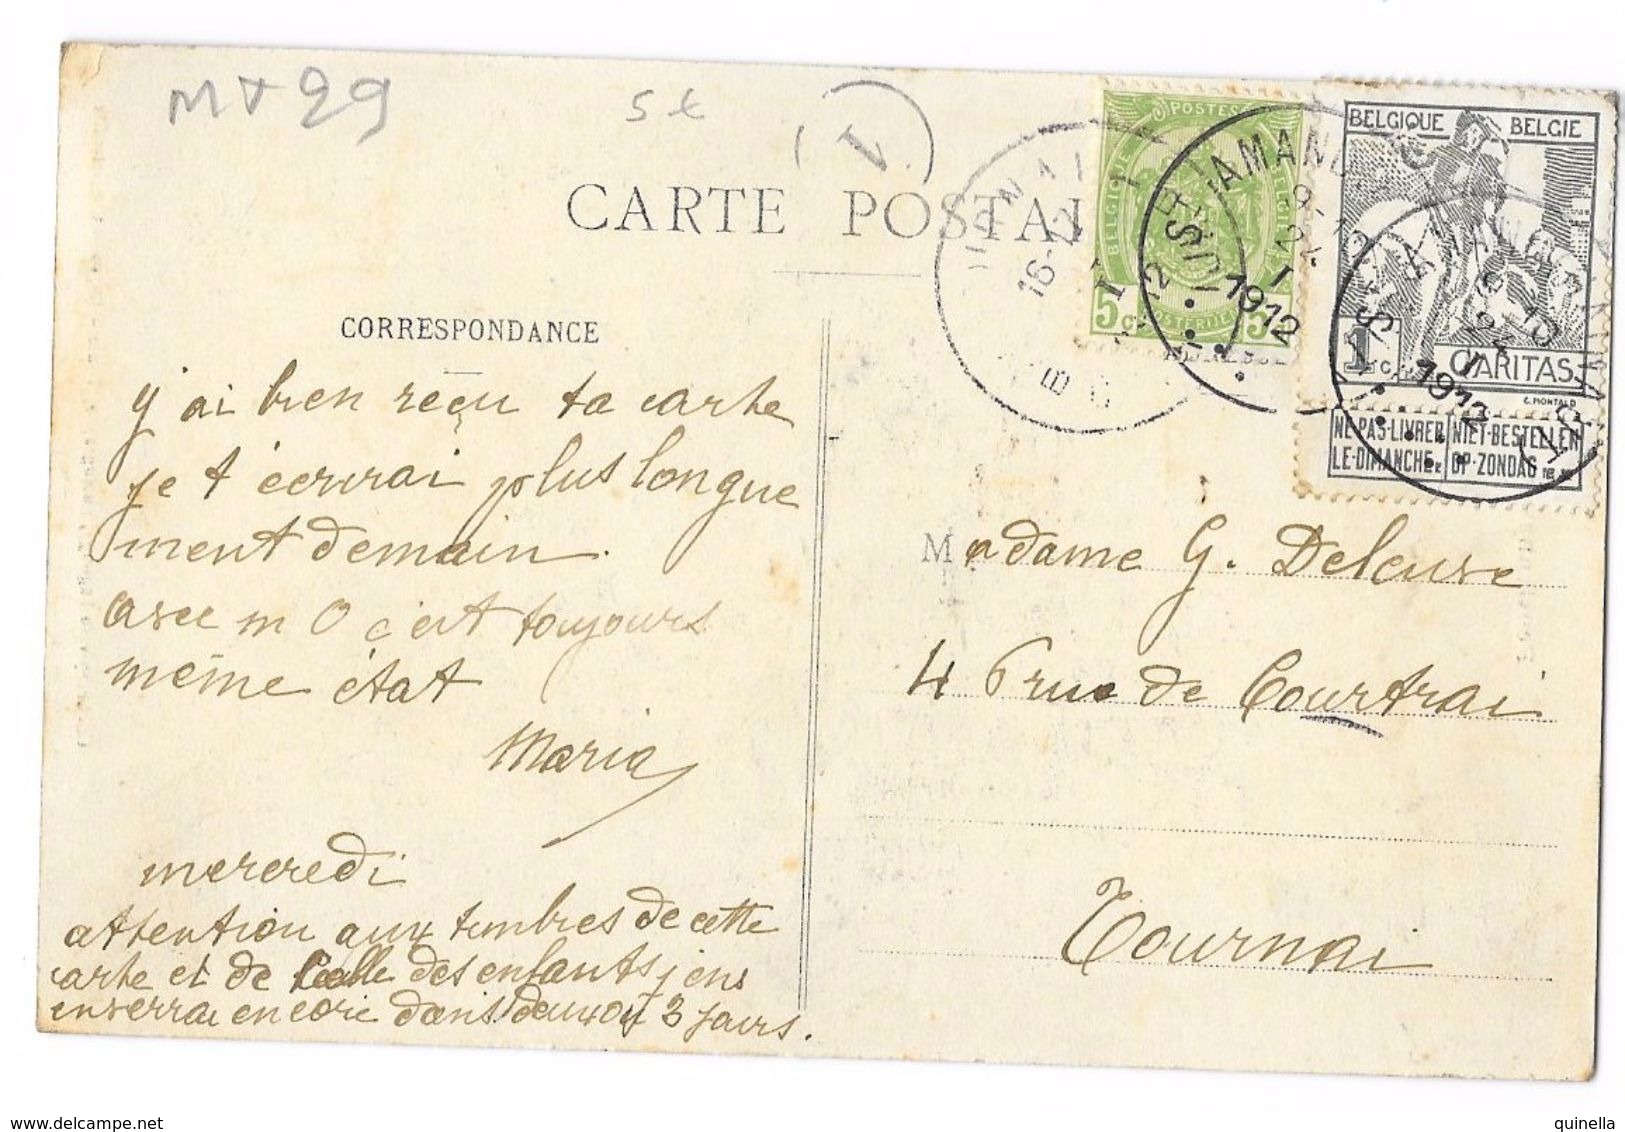 M+99
5 €
1
CARTE POSTAL
CORRESPONDANCE
j'ai bien reçu ta carte
je t'écrirai plus longue
ment demain.
avec m O c'est toujours
même état
Maria
mercredi
attention aux timbres de cette
carte et de celle des enfants j'en
enverrai encore dans deux ou 3 jours.
POSTES
BELGIQUE
5 c
5
ST AMAND
22 I
1912
BELGIQUE BELGIE
1 c.
CARITAS
C. MONTALD
NE-PAS-LIVRER LE-DIMANCHE
NIET-BESTELLEN OP-ZONDAG
1912
Madame G. Deleuse
46 rue de Courtrai
Tournai
quinella
www.delcampe.net